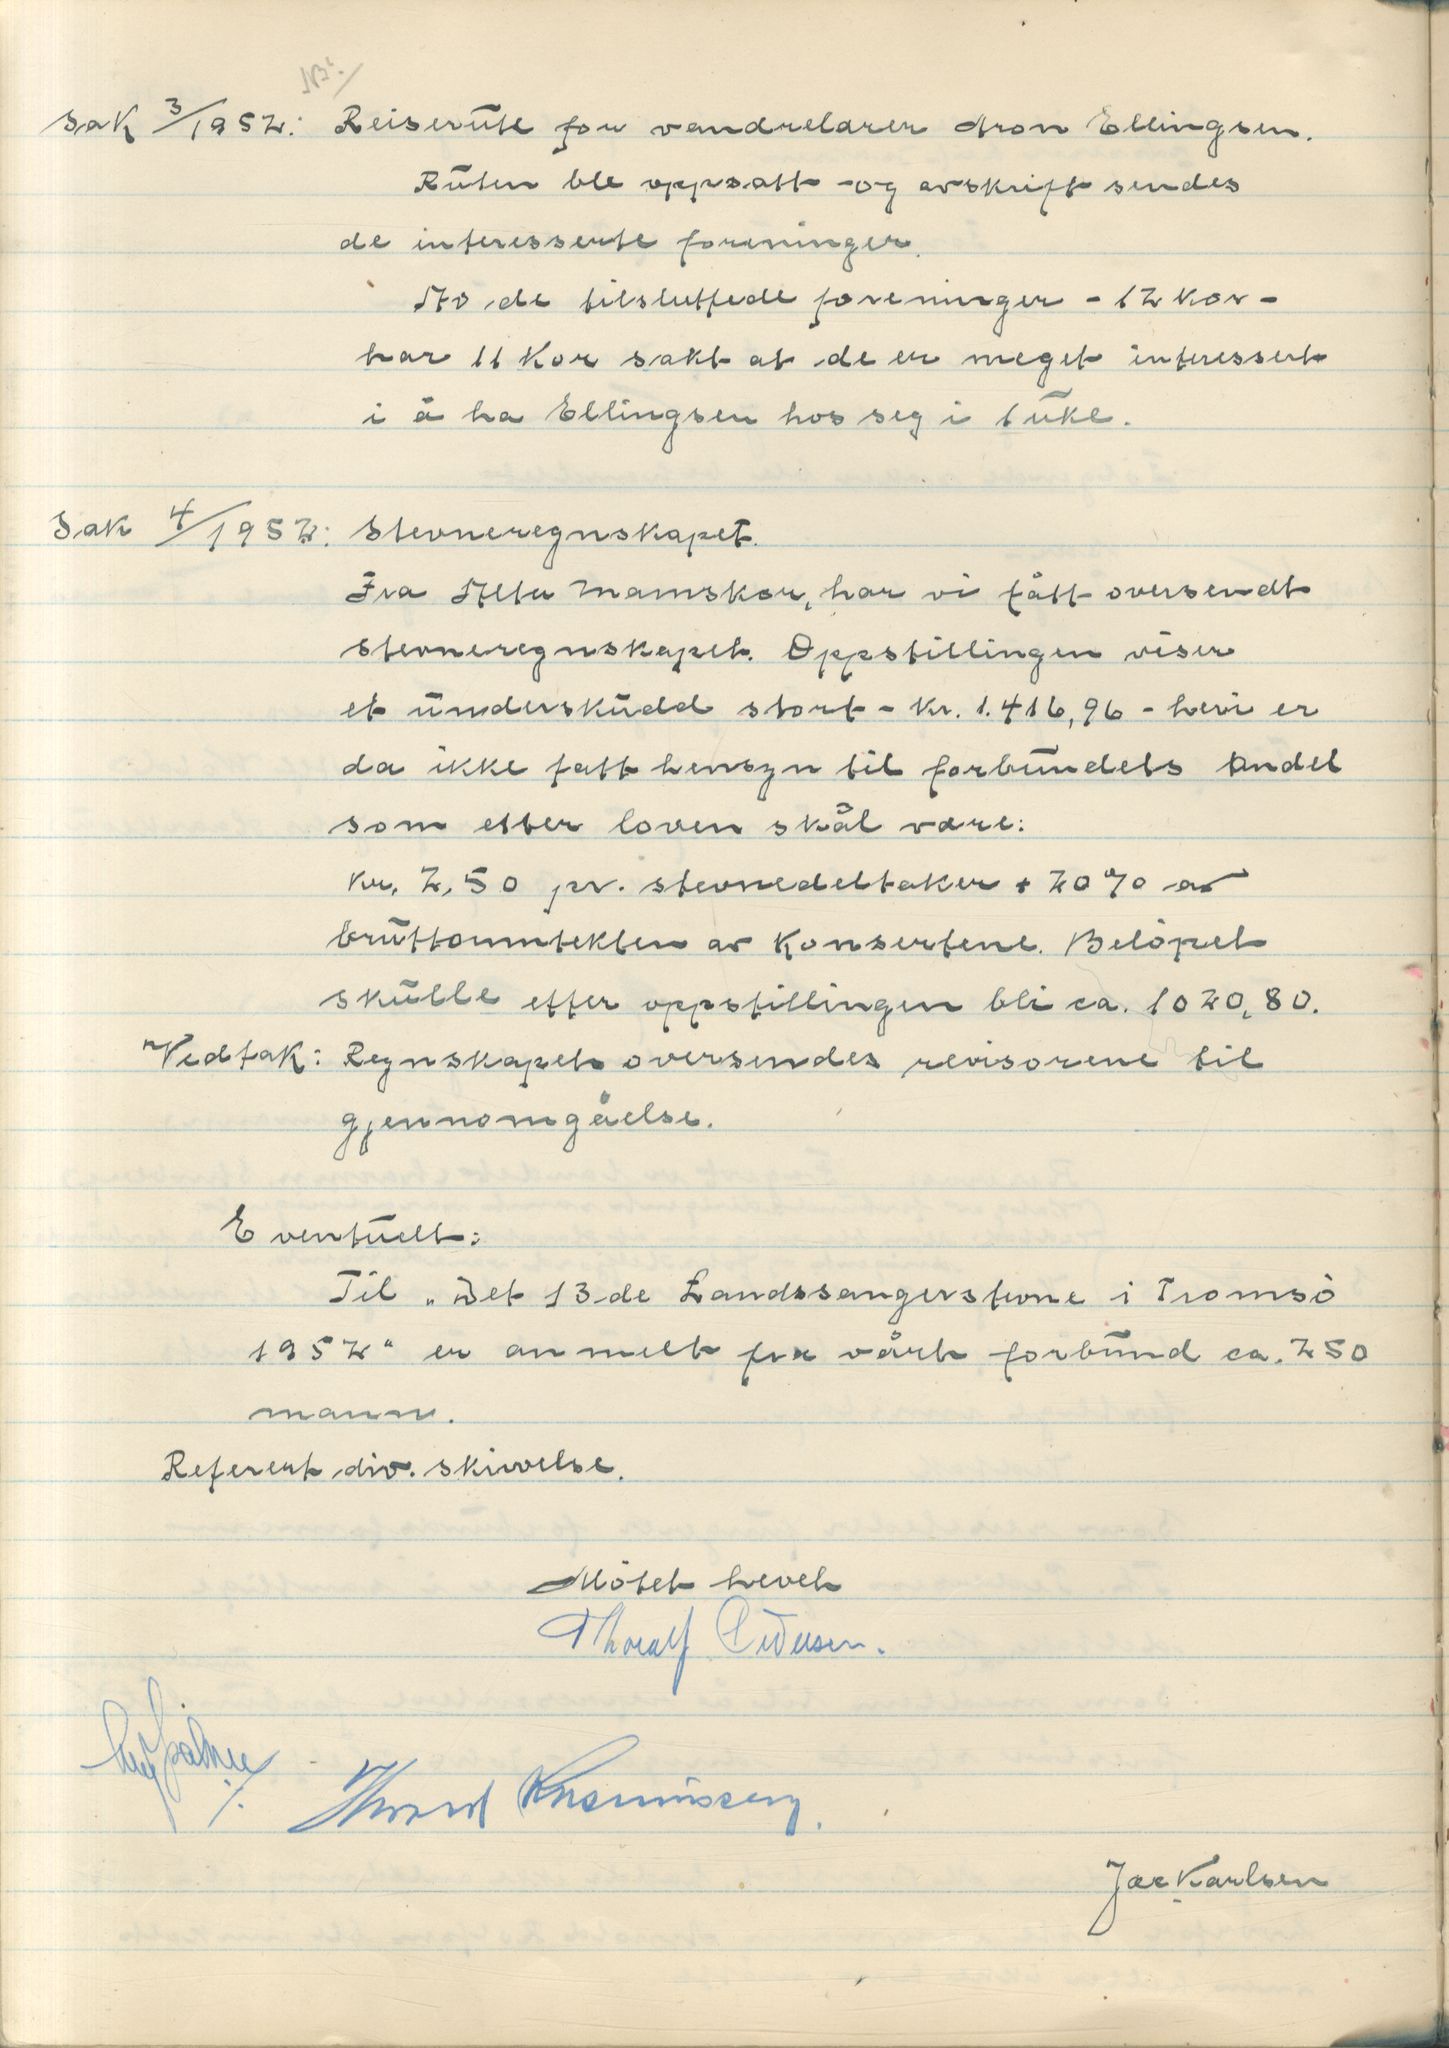 NB!
Sak 3/1952: Reiserute for vandrelærer Aron Ellingsen.
Ruten ble oppsatt og avskrift sendes
de interesserte foreninger.
Av de tilsluttede foreninger - 12 kor -
har 11 kor sakt at de er meget interessert
i å ha Ellingsen hos seg i 1 uke.
Sak 4/1952: Stevneregnskapet.
Fra Alta Mannskor, har vi fått oversendt
stevneregnskapet. Oppstillingen viser
et underskudd stort - kr. 1.416,96 - heri er
da ikke tatt hensyn til forbundets andel
som etter loven skal være:
kr. 2,50 pr. stevnedeltaker + 20% av
bruttoinntekten av konsertene. Beløpet
skulle etter oppstillingen bli ca. 1020,80.
Vedtak: Regnskapet oversendes revisorene til
gjennomgåelse.
Eventuelt:
Til "Det 13de Landssangerstevne i Tromsö
1952" er anmelt fra vårt forbund ca. 250
mann.
Referert div. skrivelse.
Mötet hevet
Thoralf Pedersen.
Rasmussen.
Joe Karlsen